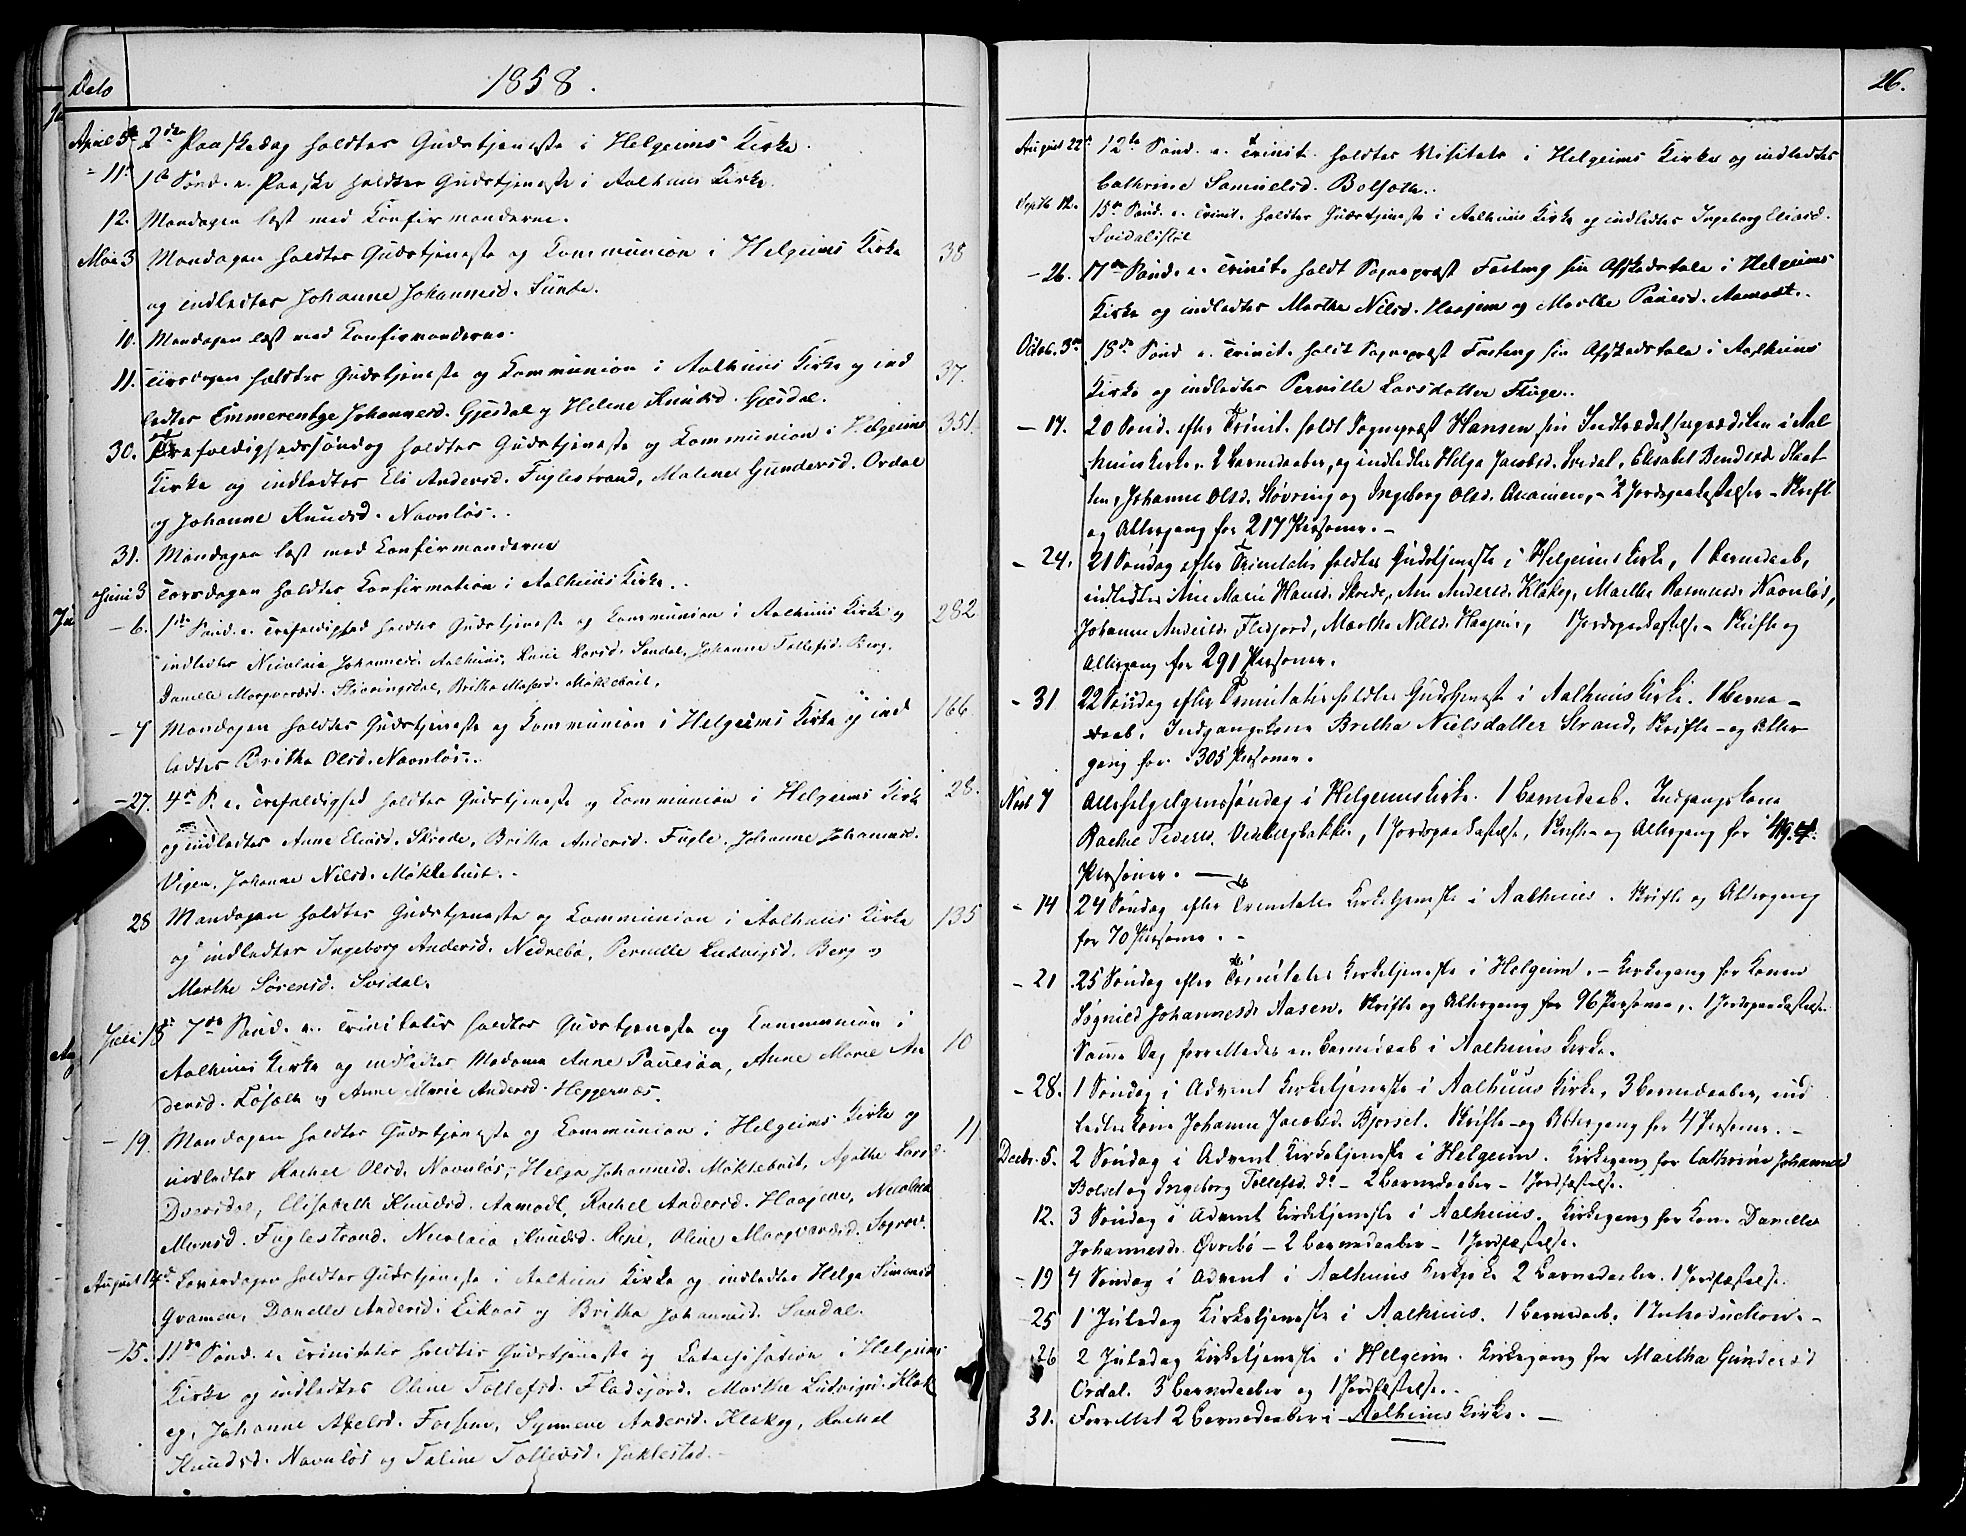 Dato
1858.
April 5te 2den Paaskedag holdtes Gudstjeneste i Helgeims Kirke.
- 11te 1ste Sønd. e. Paaske holdtes Gudstjeneste i Aalhuus Kirke.
12. Mandagen læst med Konfirmanderne.
Mai 3 Mandagen holdtes Gudstjeneste og Kommunion i Helgeims Kirke 38
og indledtes Johanne Johannesd. Sunte.
10. Mandagen læst med Konfirmanderne.
11. Tirsdagen holdtes Gudstjeneste og Kommunion i Aalhuus Kirke og ind 37.
ledtes Emmerentze Johannesd. Gjesdal og Helene Knudsd. Gjesdal.
30. Trefoldighedssøndag holdtes Gudstjeneste og Kommunion i Helgeims 351.
Kirke og indledtes Eli Andersd. Fuglestrand, Malene Gundersd. Ordal
og Johanne Knudsd. Navnløs.
31. Mandagen læst med Konfirmanderne
Juni 3 Torsdagen holdtes Konfirmation i Aalhuus Kirke.
- 6. 1ste Sønd. e. Trefoldighed holdtes Gudstjeneste og Kommunion i Aalhuus Kirke og 282
indledtes Nicolaia Johannesd. Aalhuus, Larsd. Sandal, Johanne Tollefsd. Berg,
Danelle Morgvardsd. Støvringsdal, Britha Madsd. Møklebust.
- 7 Mandagen holdtes Gudstjeneste og Kommunion i Helgeims Kirke og ind 166
ledtes Britha Olsd. Navnløs.
- 27. 4de S. e. Trefoldighed holdtes Gudstjeneste og Kommunion i Helgeims Kirke 28.
og indledtes Anne Eliasd. Skrede, Britha Andersd. Fugle, Johanne Johannesd.
Vigen, Johanne Nilsd. Møklebust.
28 Mandagen holdtes Gudstjeneste og Kommunion i Aalhuus Kirke 135
og indledtes Ingeborg Andersd. Nedrebø, Pernille Ludvigsd. Berg og
Marthe Sørensd. Svidal.
Juli 18de 7de Sønd. e. Trinitatis holdtes Gudstjeneste og Kommunion i
Aalhuus Kirke og indledtes Madame Anne Anne Marie An 10
dersd. og Anne Marie Andersd. Heggernæs.
- 19. Mandagen holdtes Gudstjeneste og Kommunion i Helgeims Kirke og 11
indledtes Rachel Olsd. Navnløs, Helga Johannesd. Møklebust, Agathe Larsd.
Dvergsdal, Elisabeth Knudsd. Aamodt, Rachel Andersd. Haajem, Nicoline
Monsd. Fuglestrand, Nicolaia Knudsd. Oline Morgvardsd. Sogrov.
August 14de Løverdagen holdtes Gudstjeneste i Aalhuus Kirke og indledtes Helga Simonsd.
Gramen, Danelle Andersd. Eikaas og Britha Johannesd. Sandal.
- 15. 11te Sønd. e. Trinitatis holdtes Gudstjeneste og Catechisation i Helgeims
Kirke og indledtes Oline Tollefsd. Fladefjord, Marthe Ludvigsd. Klak
eg, Johanne Axelsd. Fossem, Synneve Andersd. Klakeg, Rachel
Knudsd. Navnløs og Taline Tollevsd. Jøklestad.
26.
August 22de 12te Sønd. e. Trinit. holdtes Visitats i Helgeims Kirke og indledtes
Cathrine Samuelsd. Bolsæth.
Septb 12. 15de Sønd. e. Trinit. holdtes Gudstjeneste i Aalhuus Kirke og indledtes Ingeborg Eliasd.
Svidalstøl
- 26. 17de Sønd. e. Trinit. holdt Sognepræst Fasting sin Afskedstale i Helgeims
Kirke og indledtes Marthe Nilsd. Haajem og Marthe Paulsd. Aamodt.
Octob. 3de 18de Sønd. e. Trinit. holdt Sognepræst Fasting sin Afskedstale i Aalhuus
Kirke og indledtes Pernille Larsdatter Fluge.
- 17. 20 Sønd. efter Trinit. holdt Sognepræst Hansen sin Indtrædelsesprædiken i Aal
huus Kirke. 2 Barnedaaber, og indledtes Helga Jacobsd. Elisabet Bendixd. Slaat
ten, Johanne Olsd. Støvring og Ingeborg Olsd. - 2 Jordspaakastelser - Skrift
og Altergang for 217 Personer. -
- 24. 21 Søndag efter Trinitatis holdtes Gudstjeneste i Helgeims Kirke, 1 Barnedaab,
indledtes Ane Marie Hansd. Skrede, Ane Andersd. Klakeg, Marthe Rasmusd. Navnløs,
Johanne Andersd. Flesjord, Marthe Nilsd. Haajem, 1 Jordspaakastelse - Skrifte og
Altergang for 291 Personer.
- 31 22 Søndag efter Trinitatis holdtes Gudstjeneste i Aalhuus Kirke. 1 Barne-
daab. Indgangskone Bretha Nielsdatter Strand, Skrifte- og Alter
gang for 305 Personer.
Novb 7 Allehelgelgenssøndag i Helgeims Kirke. 1 Barnedaab. Indgangskone
Rachel Pedersd. 1 Jordspaakastelse, Skrifte- og Altergang for
Personer. -
- 14 24 Søndag efter Trinitatis Kirketjeneste i Aalhuus. Skrifte og Altergang
for 70 Personer. -
- 21 25 Søndag efter Trinitatis Kirketjeneste i Helgeim. - Kirkegang for Konen
Søgnild Johannesd. Aasen. Skrifte og Altergang for 96 Personer. 1 Jordspaakastelse.
Samme Dag forrettedes en Barnedaab i Aalhuus Kirke.
- 28. 1 Søndag i Advent Kirketjeneste i Aalhuus Kirke, 3 Barnedaaber, ind
ledtes Kone Johanne Jacobsd. Bjørset. Skrifte- og Altergang for 4 Personer. -
Decbr. 5. 2 Søndag i Advent Kirketjeneste i Helgeim. Kirkegang for Cathrine Johannesd
Bolset og Ingeborg Tollefsd. do - 2 Barnedaaber - 1 Jordfæstelse.
12. 3 Søndag i Advent Kirketjeneste i Aalhuus. Kirkegang for Kone Danelle
Johannesd. Øvrebø - 2 Barnedaaber - 1 Jordfæstelse.
- 19 4 Søndag i Advent i Aalhuus Kirke 2 Barnedaaber. 1 Jordfæstelse.
25 1 Juledag Kirketjeneste i Aalhuus. 1 Barnedaab. 1 Introduction. -
- 26 2 Juledag Kirketjeneste i Helgeim. Kirkegang for Martha Gundersd
Ordal. 3 Barnedaaber og 1 Jordfæstelse. -
31. Forrettet 2 Barnedaaber i Aalhuus Kirke. -